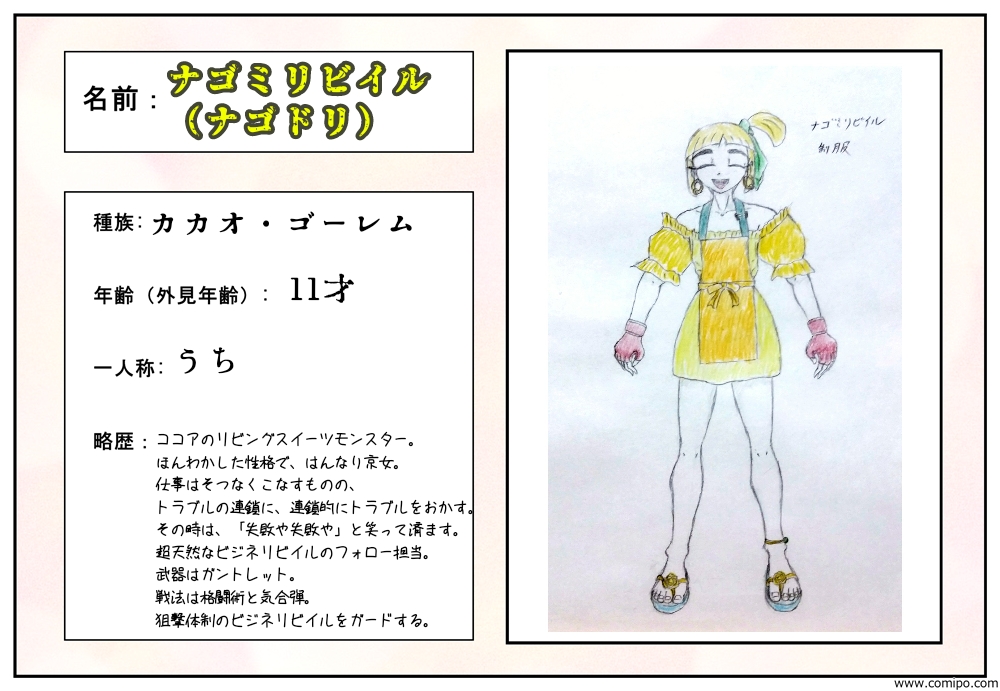 名前：ナゴミリビイル
（ナゴドリ）
種族：カカオ・ゴーレム
年齢（外見年齢）： 11才
一人称：うち
略歴：ココアのリビングスイーツモンスター。
ほんわかした性格で、はんなり京女。
仕事はそつなくこなすものの、
トラブルの連鎖に、連鎖的にトラブルをおかす。
その時は、「失敗や失敗や」と笑って済ます。
超天然なビジネリビイルのフォロー担当。
武器はガントレット。
戦法は格闘術と気合弾。
狙撃体制のビジネリビイルをガードする。
ナゴミリビイル
制服
www.comipo.com